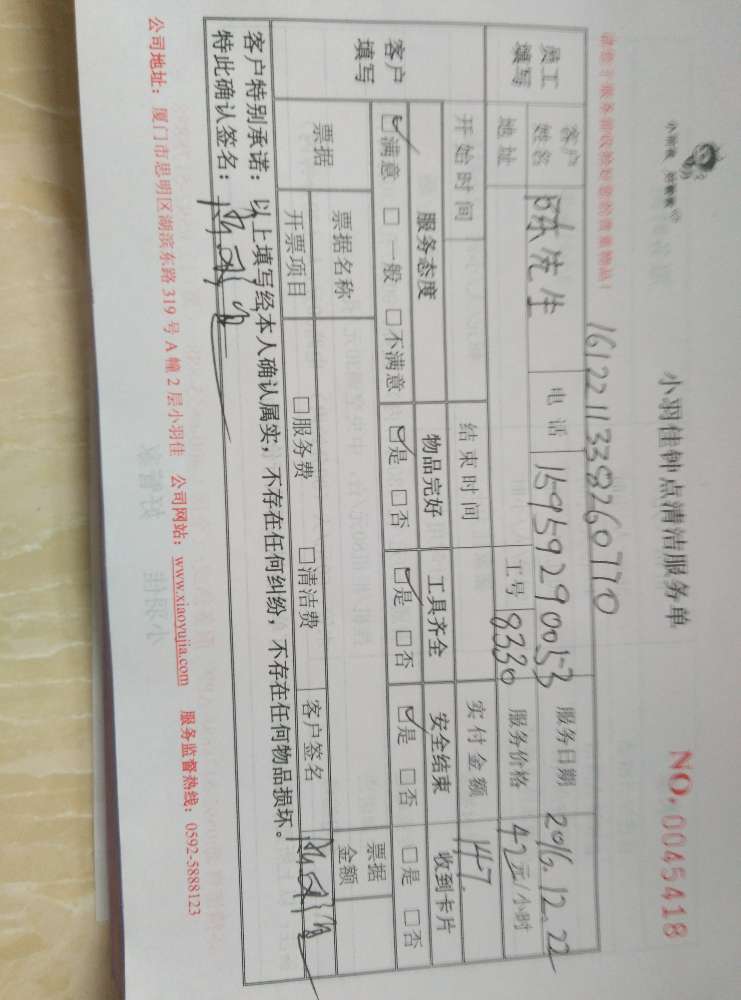 小羽佳钟点清洁服务单
NO. 0045418
161221133982607710
请您于服务前收拾好您的贵重物品!
员工填写 客户姓名 陈先生 电话 15959290053 服务日期 2016.12.22
地址 工号 8330 服务价格 42元/小时
开始时间 结束时间 实付金额 147
客户填写 服务态度 物品完好 工具齐全 安全结束 收到卡片
☑满意 □一般 □不满意 ☑是 □否 ☑是 □否 ☑是 □否 □是 □否
票据 票据名称 票据金额
开票项目 □服务费 □清洁费 客户签名
客户特别承诺:以上填写经本人确认属实,不存在任何纠纷,不存在任何物品损坏。
特此确认签名:
公司地址:厦门市思明区湖滨东路319号A幢2层小羽佳 公司网站:www.xiaoyujia.com 服务监督热线:0592-5888123